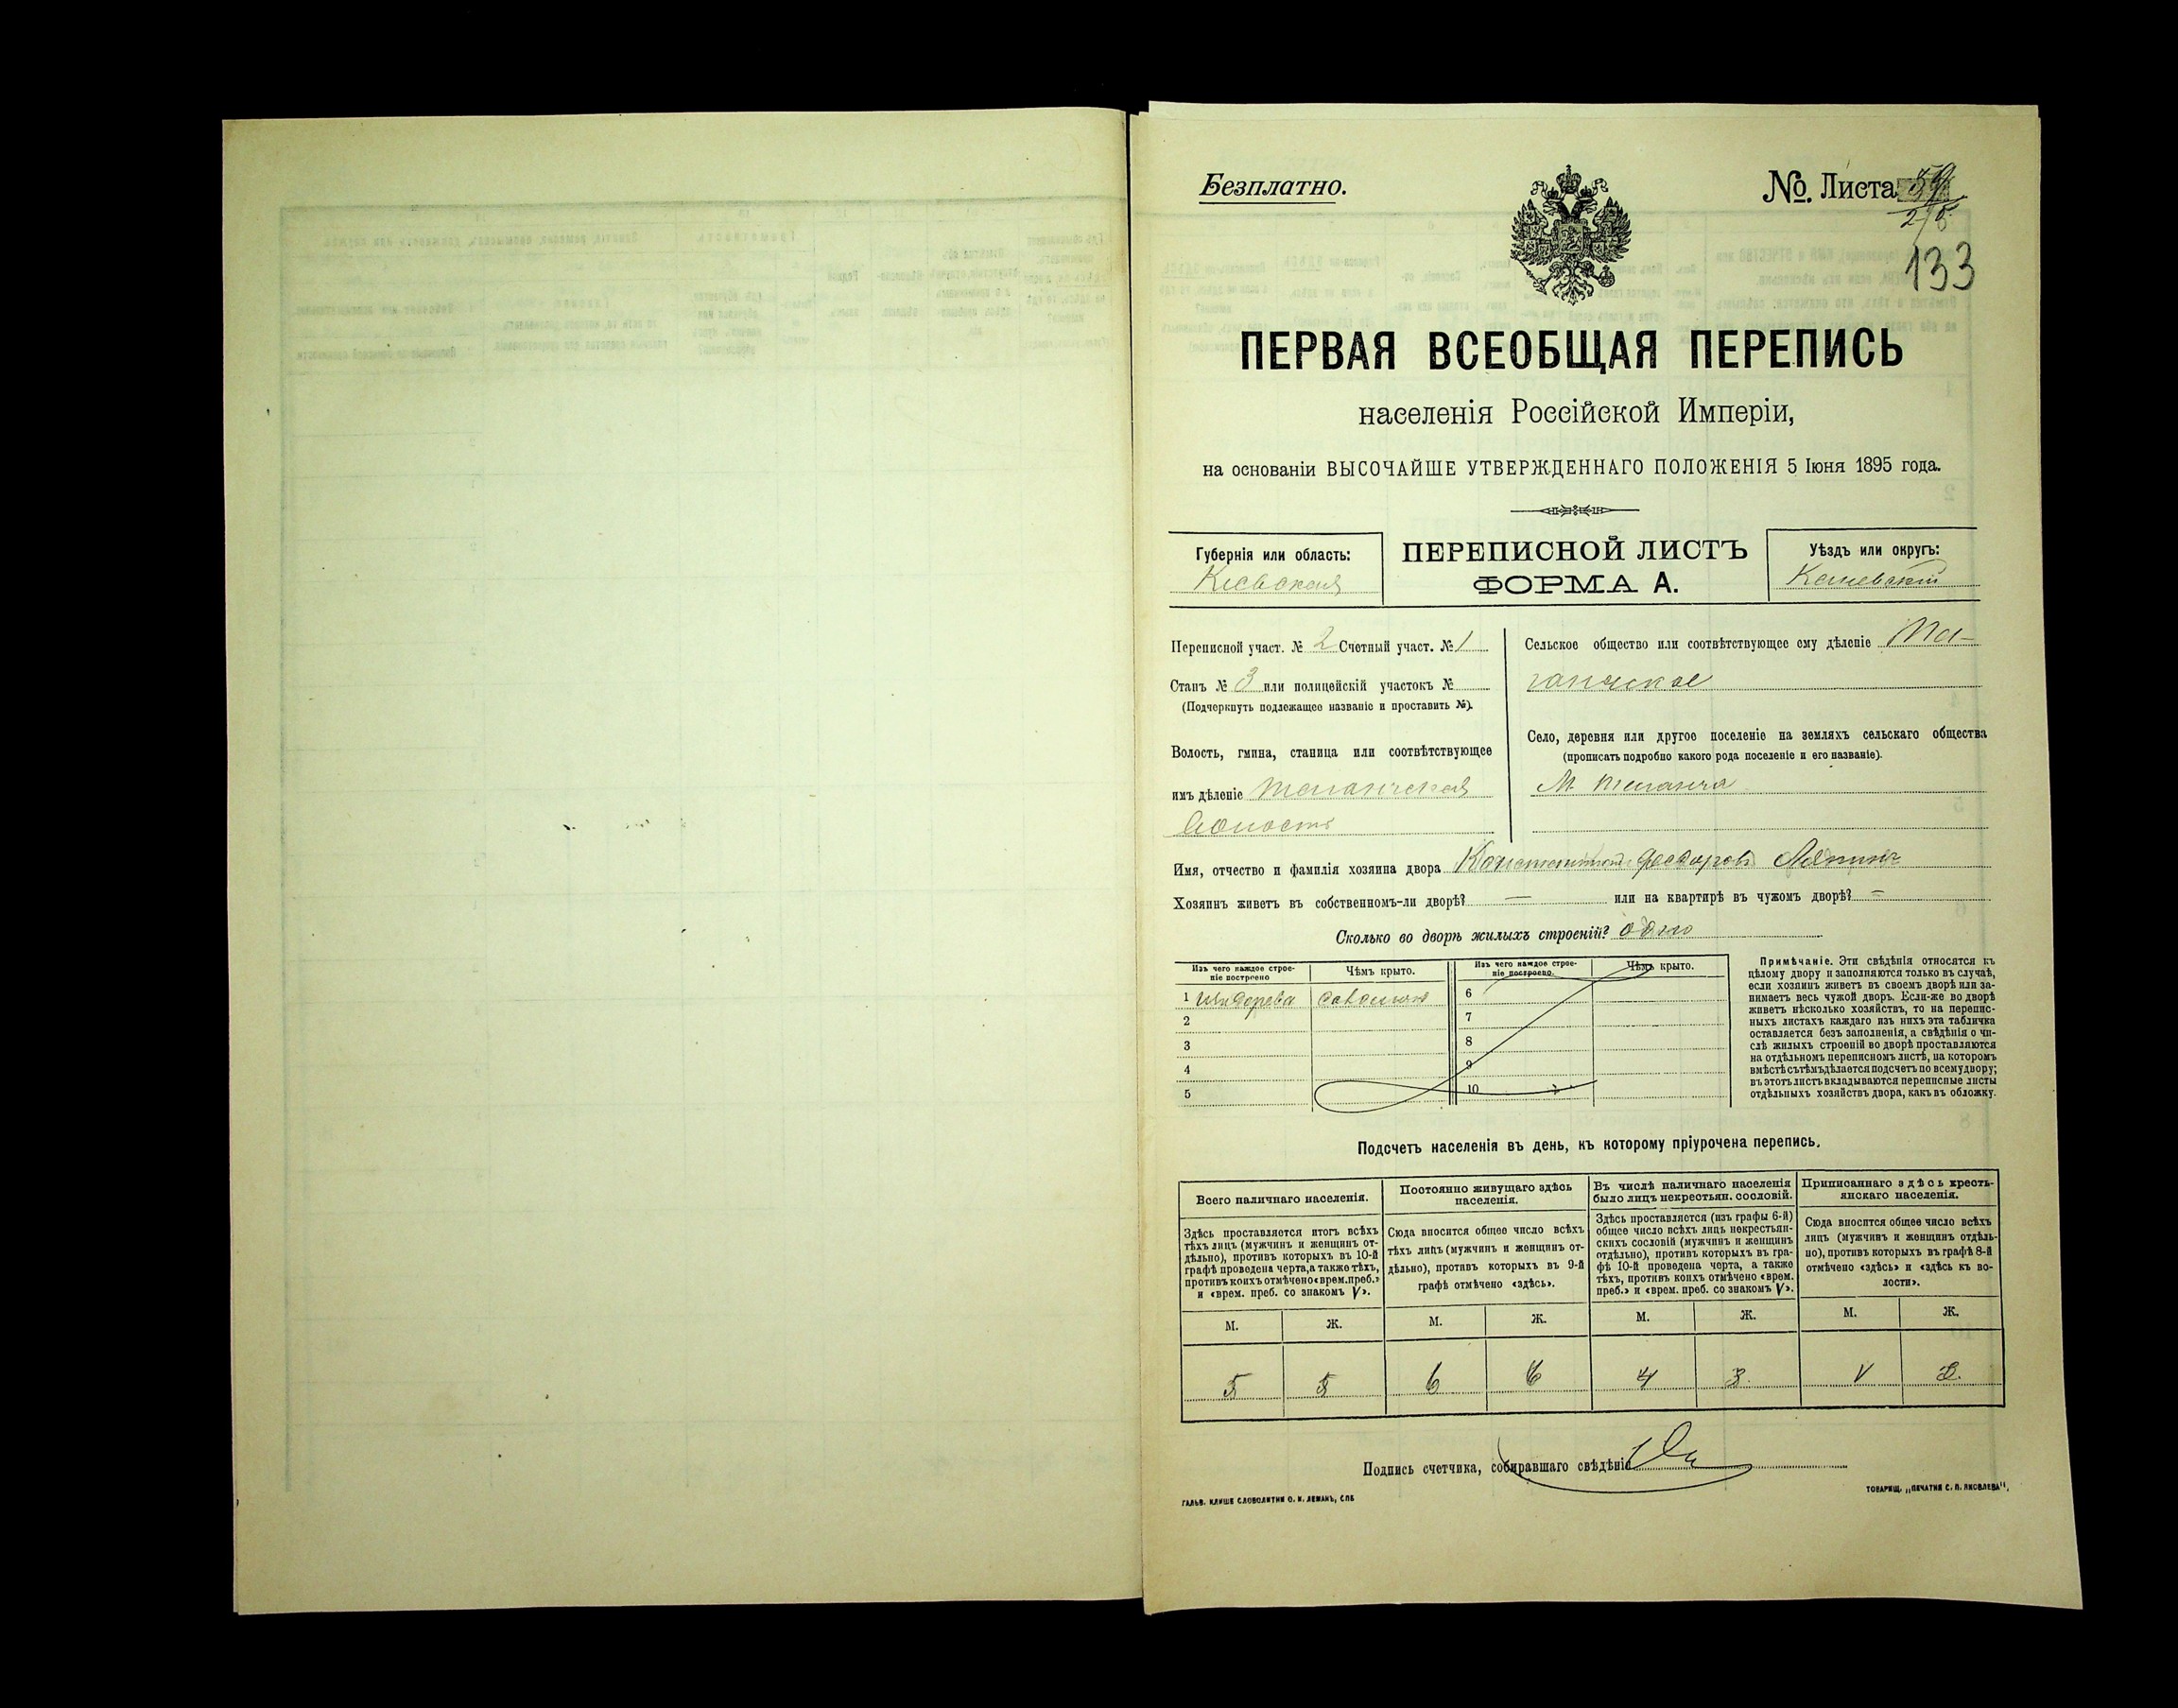 Безплатно.
№ Листа 59
133
ПЕРВАЯ ВСЕОБЩАЯ ПЕРЕПИСЬ
населенія Россійской Имперіи,
на основаніи ВЫСОЧАЙШЕ УТВЕРЖДЕННАГО ПОЛОЖЕНІЯ 5 Іюня 1895 года.
Губернія или область:
Кіевская
ПЕРЕПИСНОЙ ЛИСТЪ
ФОРМА А.
Уѣздъ или округъ:
Каневскій
Переписной участ. № 2 Счетный участ. № 1
Станъ № 3 или полицейскій участокъ №
(Подчеркнуть подлежащее названіе и проставить №).
Волость, гмина, станица или соотвѣтствующее
имъ дѣленіе Таганчская
волость
Сельское общество или соотвѣтствующее ему дѣленіе Та-
ганчское
Село, деревня или другое поселеніе на земляхъ сельскаго общества
(прописать подробно какого рода поселеніе и его названіе).
М. Таганча
Имя, отчество и фамилія хозяина двора Константинъ Федоровъ
Хозяинъ живетъ въ собственномъ-ли дворѣ? — или на квартирѣ въ чужомъ дворѣ? —
Сколько во дворѣ жилыхъ строеній? одно
Изъ чего каждое строе-
ніе построено
Чѣмъ крыто.
Изъ чего каждое строе-
ніе построено.
Чѣмъ крыто.
1 изъ дерева соломою
2
3
4
5
6
7
8
9
10
Примѣчаніе. Эти свѣдѣнія относятся къ
цѣлому двору и заполняются только въ случаѣ,
если хозяинъ живетъ въ своемъ дворѣ или за-
нимаетъ весь чужой дворъ. Если-же во дворѣ
живетъ нѣсколько хозяйствъ, то на перепис-
ныхъ листахъ каждаго изъ нихъ эта табличка
оставляется безъ заполненія, а свѣдѣнія о чи-
слѣ жилыхъ строеній во дворѣ проставляются
на отдѣльномъ переписномъ листѣ, на которомъ
вмѣстѣ съ тѣмъ дѣлается подсчетъ по всему двору;
въ этотъ листъ вкладываются переписные листы
отдѣльныхъ хозяйствъ двора, какъ въ обложку.
Подсчетъ населенія въ день, къ которому пріурочена перепись.
Всего наличнаго населенія.
Постоянно живущаго здѣсь
населенія.
Въ числѣ наличнаго населенія
было лицъ некрестьян. сословій.
Приписаннаго здѣсь кресть-
янскаго населенія.
Здѣсь проставляется итогъ всѣхъ
тѣхъ лицъ (мужчинъ и женщинъ от-
дѣльно), противъ которыхъ въ 10-й
графѣ проведена черта, а также тѣхъ,
противъ коихъ отмѣчено «врем. преб.»
и «врем. преб. со знакомъ V».
Сюда вносится общее число всѣхъ
тѣхъ лицъ (мужчинъ и женщинъ от-
дѣльно), противъ которыхъ въ 9-й
графѣ отмѣчено «здѣсь».
Здѣсь проставляется (изъ графы 6-й)
общее число всѣхъ лицъ некрестьян-
скихъ сословій (мужчинъ и женщинъ
отдѣльно), противъ которыхъ въ гра-
фѣ 10-й проведена черта, а также
тѣхъ, противъ коихъ отмѣчено «врем.
преб.» и «врем. преб. со знакомъ V».
Сюда вносится общее число всѣхъ
лицъ (мужчинъ и женщинъ отдѣль-
но), противъ которыхъ въ графѣ 8-й
отмѣчено «здѣсь» и «здѣсь къ во-
лости».
М. Ж. М. Ж. М. Ж. М. Ж.
5 5 6 6 4 3
Подпись счетчика, собиравшаго свѣдѣнія
ГАЛЬВ. КЛИШЕ СЛОВОЛИТНИ О. И. ЛЕМАНЪ, СПБ
ТОВАРИЩ. „ПЕЧАТНЯ С. П. ЯКОВЛЕВА",